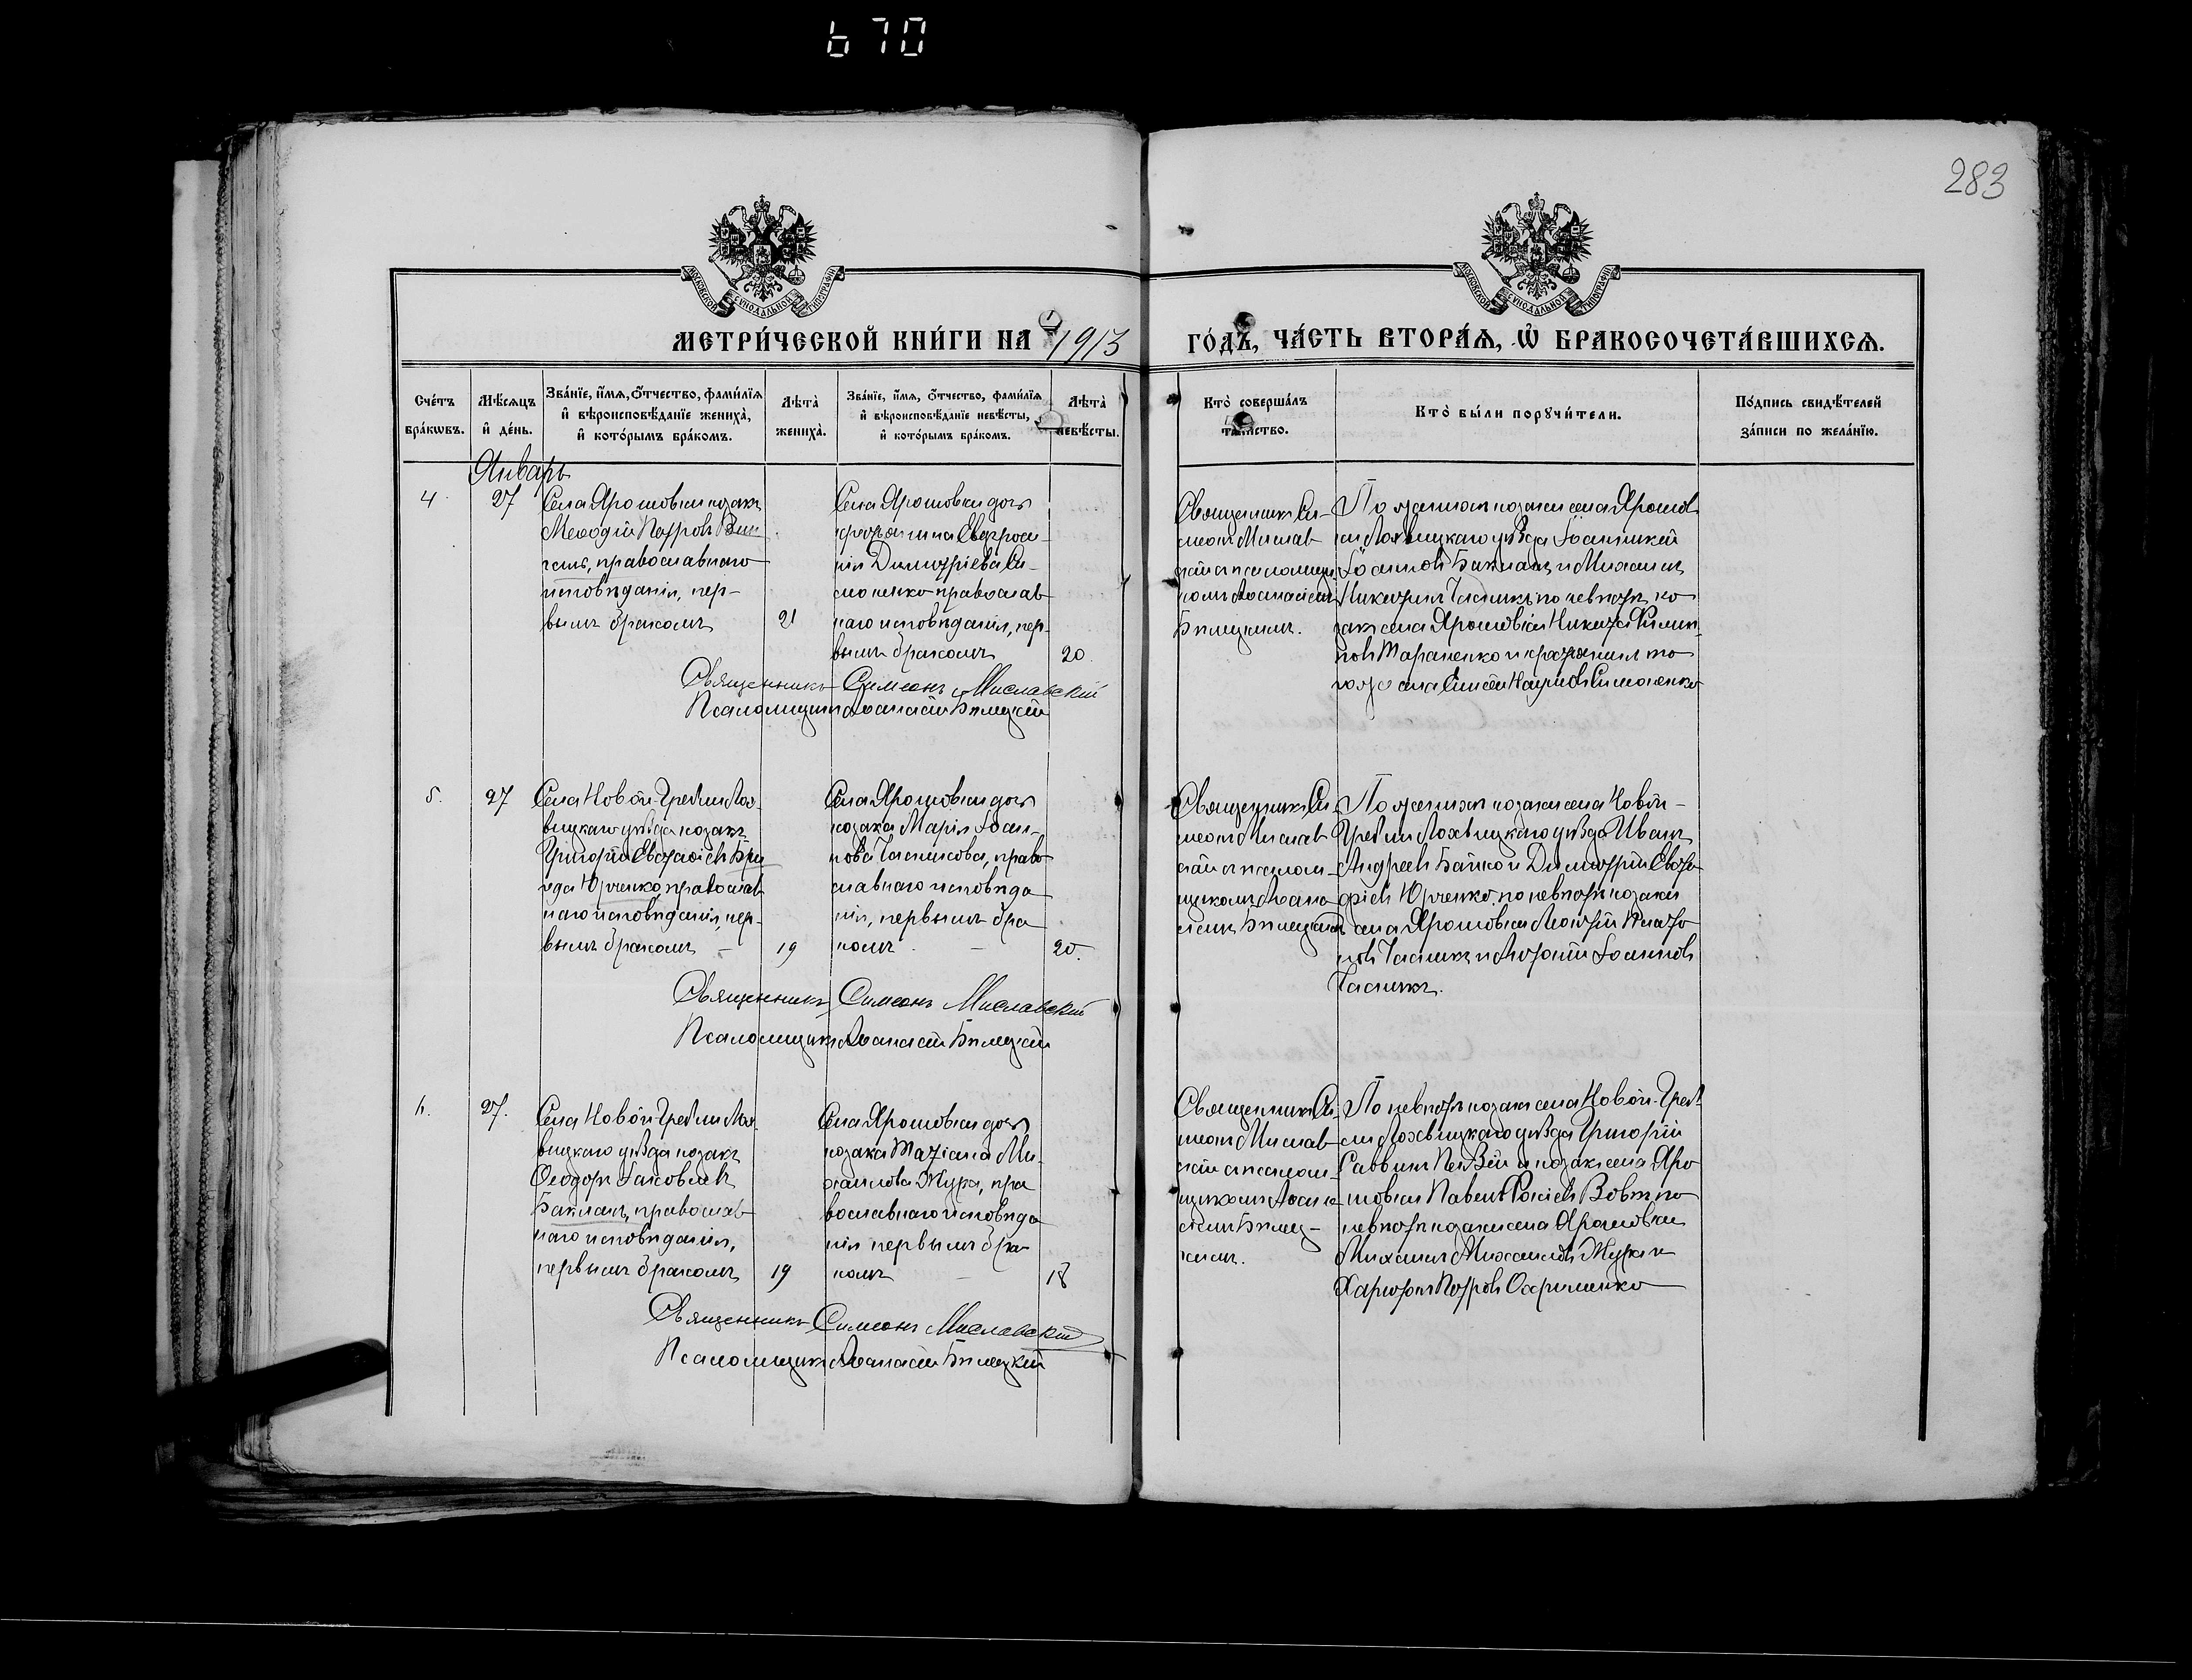 670
283
МЕТРИ́ЧЕСКОЙ КНИ́ГИ НА 1913 ГО́ДЪ, ЧА́СТЬ ВТОРА́Ѧ, Ѡ҆ БРАКОСОЧЕТА́ВШИХСѦ.
МОСКОВСКОЙ СѴНОДАЛЬНОЙ ТИПОГРАФІИ
МОСКОВСКОЙ СѴНОДАЛЬНОЙ ТИПОГРАФІИ
Сче́тъ
бра́кѡвъ.
Мѣ́сѧцъ
и҆ де́нь.
Зва́нїе, и҆́мѧ, ѻ҆́тчество, фами́лїѧ
и҆ вѣроисповѣ́данїе жениха̀,
и҆ кото́рымъ бра́комъ.
Лѣта̀
жениха̀.
Зва́нїе, и҆́мѧ, ѻ҆́тчество, фами́лїѧ
и҆ вѣроисповѣ́данїе невѣ́сты,
и҆ кото́рымъ бра́комъ.
Лѣта̀
невѣ́сты.
Кто̀ соверша́лъ
та́инство.
Кто̀ бы́ли порꙋчи́тели.
По́дпись свидѣ́телей
за́писи по жела́нїю.
Январь
4
27
Села Ярошовки козакъ
Меѳодій Петровъ
православнаго
исповѣданія, пер-
вымъ бракомъ
21
Села Ярошовки дочь
Евфроси-
нія Димитріева Си-
моненко православ
наго исповѣданія, пер-
вымъ бракомъ
20
Священникъ Си-
меонъ Мислав
скій съ псаломщи
комъ Аѳанасіемъ
Бѣлецкимъ.
По женихѣ козаки села Ярошов
ки Лохвицкаго уѣзда Іоанникій
Іоанновъ Бакланъ и Михаилъ
по невѣстѣ ко
закъ села Ярошовки Никита Филип
повъ Тараненко и крестьянинъ то
гоже села Симеонъ Наумовъ Симоненко
Священникъ Симеонъ Миславскій
Псаломщикъ Аѳанасій Бѣлецкій
5.
27
Села Новой-Гребли Лох-
вицкаго уѣзда козакъ
Григорій Евстафіевъ
Юрченко, православ
наго исповѣданія, пер-
вымъ бракомъ –
19
Села Ярошовки дочь
козака Марія Іоан-
нова право
славнаго исповѣда
нія, первымъ бра
комъ. –
20.
Священникъ Си
меонъ Мислав
скій съ псалом-
щикомъ Аѳана
сіемъ Бѣлецкимъ
По женихѣ козаки села Новой-
Гребли Лохвицкаго уѣзда Иванъ
Андреевъ Байко и Димитрій Евста
фіевъ Юрченко, по невѣстѣ козаки
села Ярошовки
и Іоанновъ
Священникъ Симеонъ Миславскій
Псаломщикъ Аѳанасій Бѣлецкій
6.
27.
Села Новой-Гребли Лох-
вицкаго уѣзда козакъ
Ѳеодоръ Іаковлевъ
Бакланъ, православ
наго исповѣданія,
первымъ бракомъ
19
Села Ярошовки дочь
козака Татіана Ми-
хаилова Жура, пра
вославнаго исповѣда
нія первымъ бра
комъ –
18
Священникъ Си-
меонъ Мислав
скій съ псалом-
щикомъ Аѳана
сіемъ Бѣлец-
кимъ.
По козаки села Новой-Греб-
ли Лохвицкаго уѣзда Григорій
Саввинъ и козакъ села Яро
шовки Павелъ по
невѣстѣ козаки села Ярошовки
Михаилъ Михаиловъ Жура и
Петровъ Охрименко
Священникъ Симеонъ Миславскій
Псаломщикъ Аѳанасій Бѣлецкій